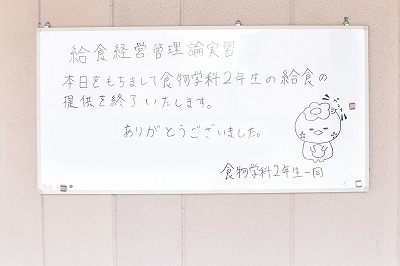 給食経営管理論実習
本日をもちまして食物学科2年生の給食の
提供を終了いたします。
ありがとうございました。
食物学科2年生一同